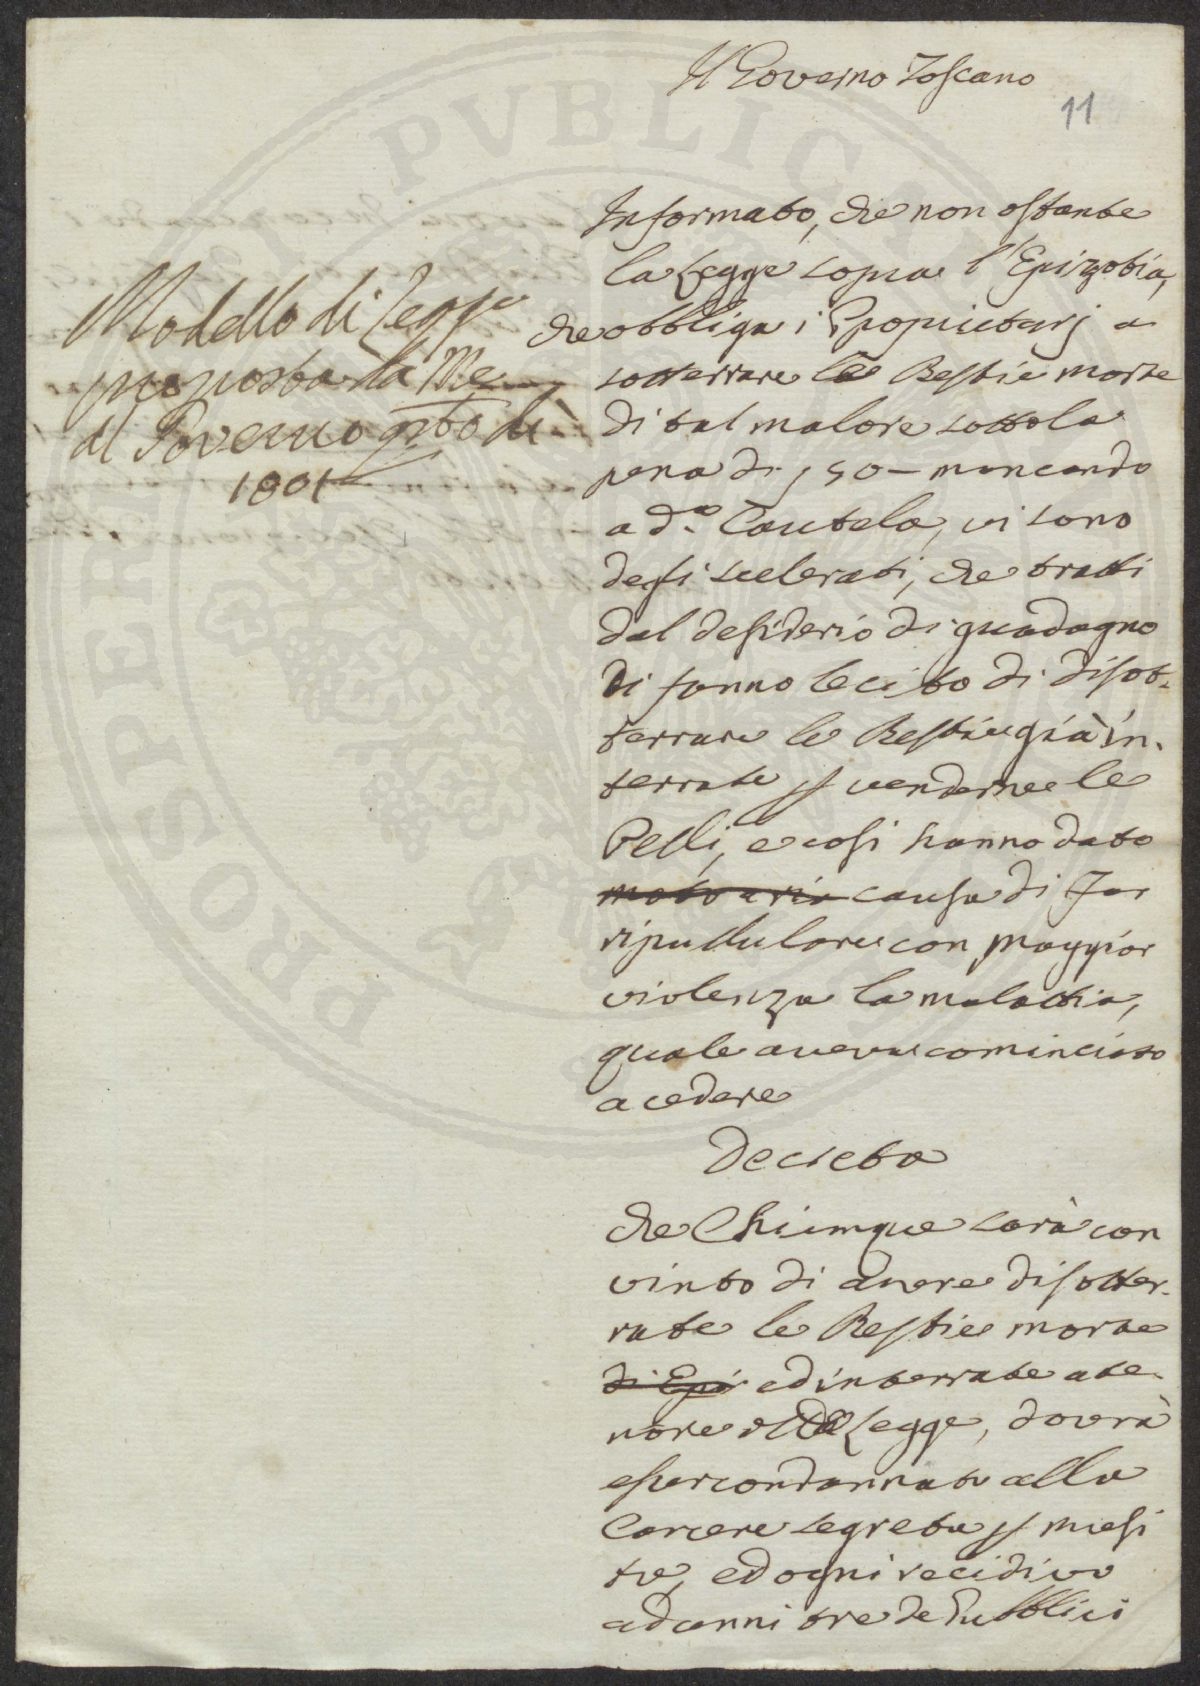 Il Governo Toscano
11
Modello di Legge
proposta da Me
al Governo qsto dì
1801
Informato, che non ostante
la Legge sopra l'Epizzotia,
che obbliga i Proprietarj a
sotterrare le Bestie morte
di tal malore sotto la
pena di 50 – mancando
a d.a Cautela, vi sono
degli scelerati, che tratti
dal desiderio di guadagno
si fanno lecito di disot-
terrare le Bestie già in-
terrate p venderne le
Pelli, e così hanno dato
causa di far
ripullulare con maggior
violenza la malattia,
quale aveva cominciato
a cedere
Decreta
che Chiunque sarà con
vinto di avere disotter-
rate le Bestie morte
di Epi ed interrate a te-
nore della Legge, dovrà
esser condannato alla
Carcere segreta p mesi
tre, ed ogni recidivo
ad anni tre de Pubblici
PVBLICAE
PROSPERITATI